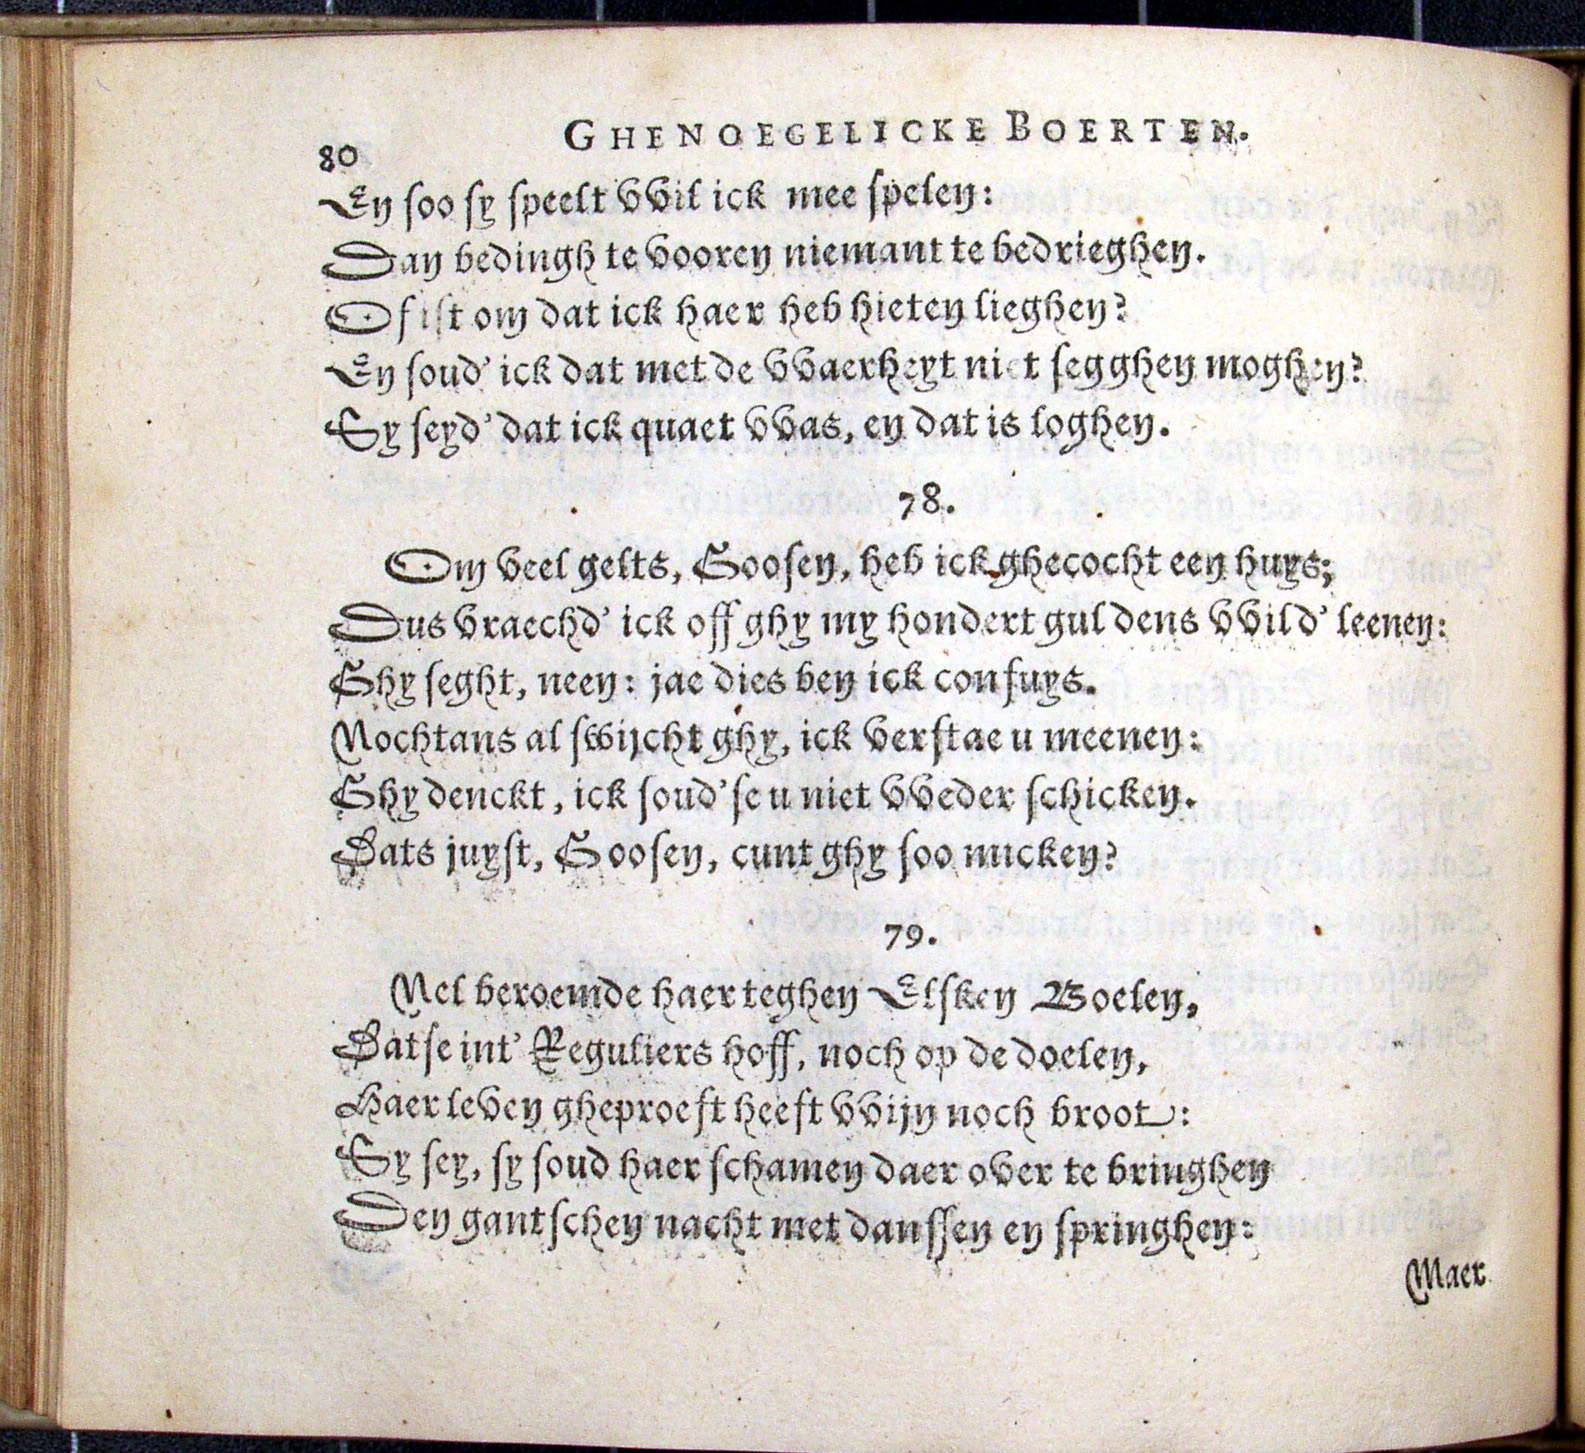 80
GHENOEGELICKE BOERTEN.
En soo sy speelt vvil ick mee spelen:
Dan bedingh te vooren niemant te bedrieghen.
Of ist om dat ick haer heb hieten lieghen?
En soud' ick dat met de vvaerheyt niet segghen moghen?
Sy seyd' dat ick quaet vvas, en dat is loghen.
78.
Om veel gelts, Goosen, heb ick ghecocht een huys;
Dus vraechd' ick off ghy my hondert guldens vvild' leenen:
Ghy seght, neen: jae dies ben ick confuys.
Nochtans al swijcht ghy, ick verstae u meenen:
Ghy denckt, ick soud' se u niet vveder schicken.
Dats juyst, Goosen, cunt ghy soo micken?
79.
Nel beroemde haer teghen Elsken Boelen,
Datse int' Reguliers hoff, noch op de doelen,
Haer leven gheproeft heeft vvijn noch broot:
Sy sey, sy soud haer schamen daer over te bringhen
Den gantschen nacht met danssen en springhen:
Maer